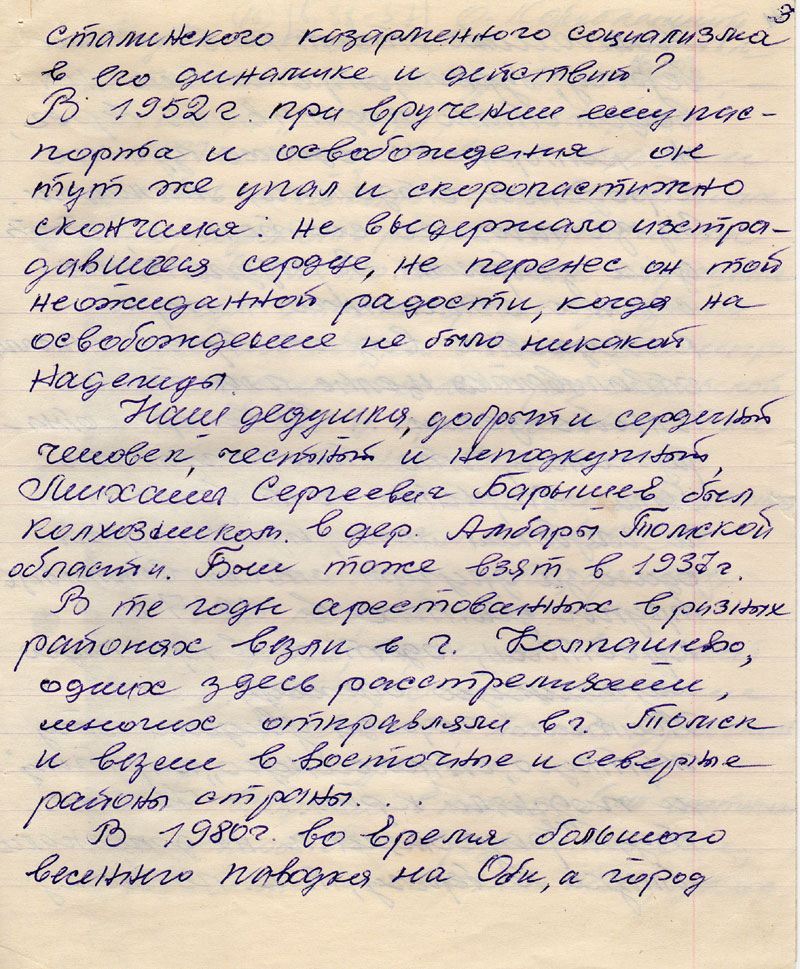 3
сталинского казарменного социализма
в его динамике и действий?
В 1952 г. при вручении ему пас-
порта и освобождения он
тут же упал и скоропастижно
скончался: не выдержало изстра-
давшееся сердце, не перенес он той
неожиданной радости, когда на
освобождение не было никакой
надежды.
Наш дедушка, добрый и сердечный
человек, честный и неподкупный,
Михаил Сергеевич Барышев был
колхозником в дер. Амбары Томской
области. Был тоже взят в 1937 г.
В те годы арестованных в разных
районах везли в г. Колпашево,
одних здесь расстреливали,
многих отправляли в г. Томск
и везли в восточные и северные
районы страны...
В 1980 г. во время большого
весеннего паводка на Оби, а город